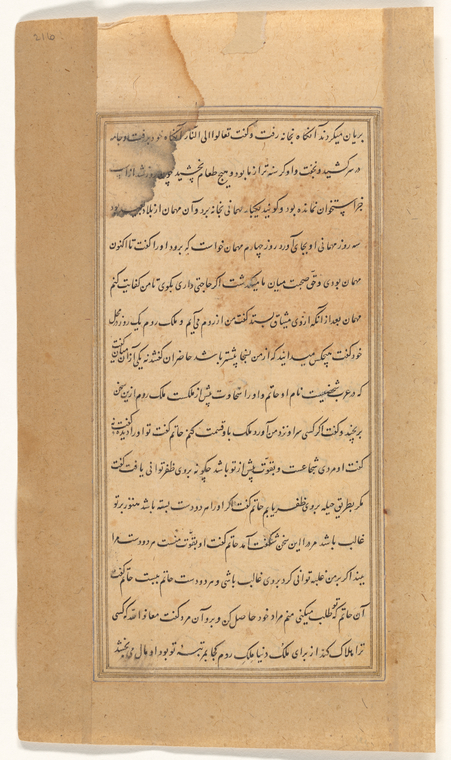 ۲۱۵
بریان میکردند آنگاه بخانه رفت و گفت تعالوا الی النار آنگاه خود برفت و جامه
در سر کشید و بخفت و او گرسنه تر از ما بود و هیچ طعام نچشید چون روز شد از اسب
جز استخوان نمانده بود و گویند یکبار مهمانی بخانه برد و آن مهمان از بلاد بود
سه روز مهمانی او بجای آورد روز چهارم مهمان خواست که برود او را گفت تا اکنون
مهمان بودی و حق صحبت میان ما میگذشت اگر حاجتی داری بگوی تا من کفایت کنم
مهمان بعد از آنکه ازوی میثاق بستد گفت من از روم می آیم و ملک روم یک روز در محفل
خود گفت هیچکس میدانید که از من سخا بیشتر باشد حاضران گفتند نه یکی از آن میان گفت
که در عرب شخصیست نام او حاتم و او را سخاوت بیش از ملکست ملک روم ازین سخن
برنجید و گفت اگر کسی سر او نزد من آورد ملک با او قسمت کنم حاتم گفت تو او را دیده گفت نی
گفت او مردی شجاعست و بقوت بیش از تو باشد چگونه بروی ظفر توانی یافت گفت
مگر بطریق حیله بروی ظفر یابم حاتم گفت اگر او را هر دو دست بسته باشد هنوز بر تو
غالب باشد مرد را این سخن شگفت آمد حاتم گفت او بقوت منست هر دو دست مرا
ببند اگر بر من غلبه توانی کرد بروی غالب باشی و مرد دست حاتم ببست حاتم گفت
آن حاتم که تو طلب میکنی منم مراد خود حاصل کن و برو آن مرد گفت معاذ الله که کسی
ترا هلاک کند از برای ملک دنیا ملک روم کجا بمرتبه تو بود او مال می بخشد